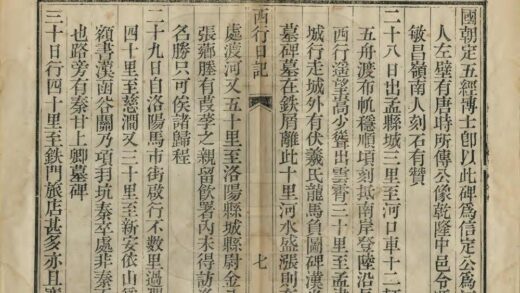 國朝定五經博士卽以此碑爲信定公爲
人左壁有唐時所傳公像乾隆中邑令
敏昌嶺南人刻石有贊
二十八日出孟縣城三里至河口車十二
五舟渡布帆穩順頃刻抵南岸登陸沿
西行遥望嵩少聳出雲霄三十里至孟津
城行走城外有伏羲氏龍馬負圖碑漢光
墓碑墓在鉄屑離此十里河水盛漲則
西行日記
七
處渡河又五十里至洛陽縣城縣尉金
張鄉塍有葭莩之親留飲署內未得訪
名勝只可俟諸歸程
二十九日自洛陽馬市街啟行不數里過
四十里至慈澗又三十里至新安依山
額書漢函谷關乃項羽坑秦卒處非秦
也路旁有秦甘上卿墓碑
三十日行四十里至鉄門旅店甚多亦且